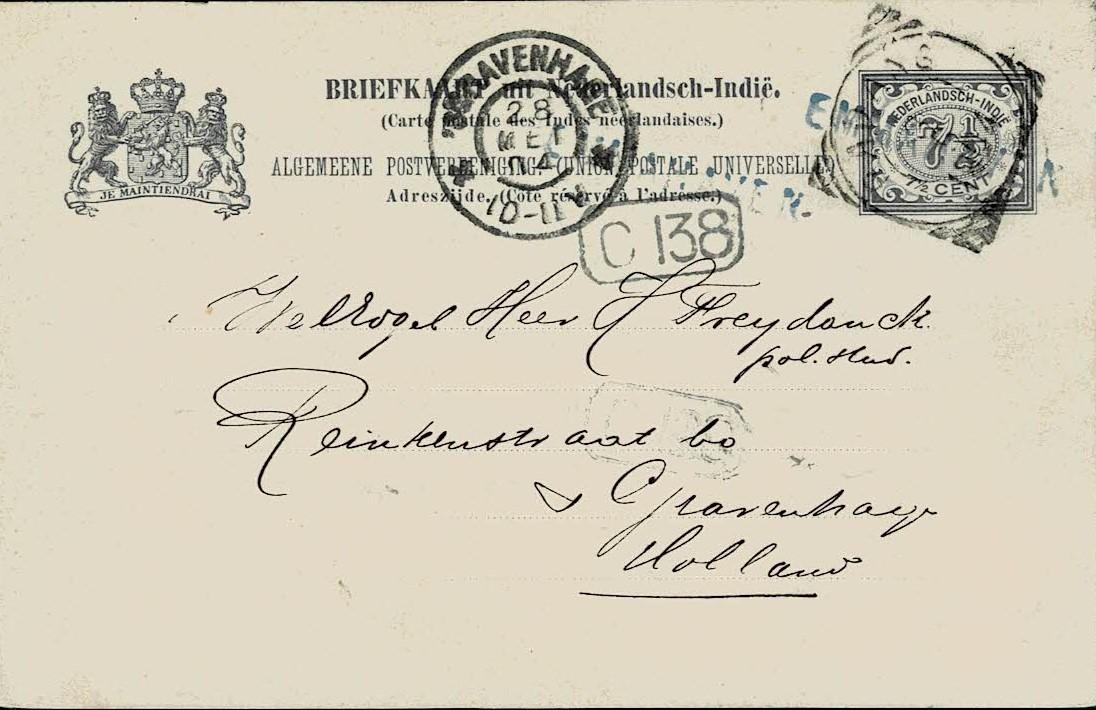 BRIEFKAART uit Nederlandsch-Indië.
(Carte postale des Indes néerlandaises.)
ALGEMEENE POSTVEREENIGING. (UNION POSTALE UNIVERSELLE)
Adreszijde. (Côté réservé à l'adresse.)
JE MAINTIENDRAI
'SGRAVENHAGE
28
MEI
04
10-11V
NEDERLANDSCH-INDIË
7½
7½ CENT
C 138
WelEdgel Heer H Freydanck
pol. stud.
Reinkenstraat 60
s Gravenhage
Holland